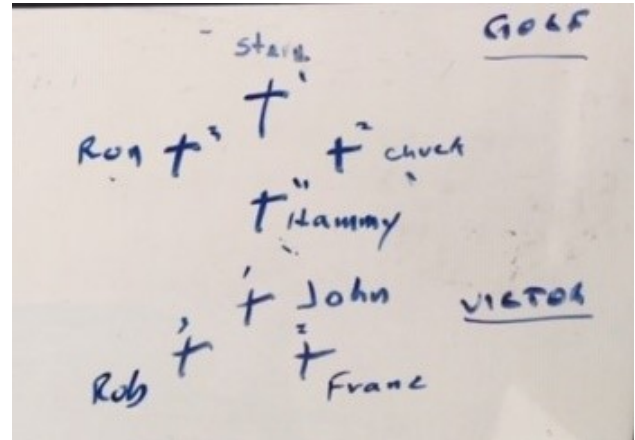 GOLF
1
Ron 3 2 Chuck
4 Hammy
1 John VICTOR
3 2
Rob Franc